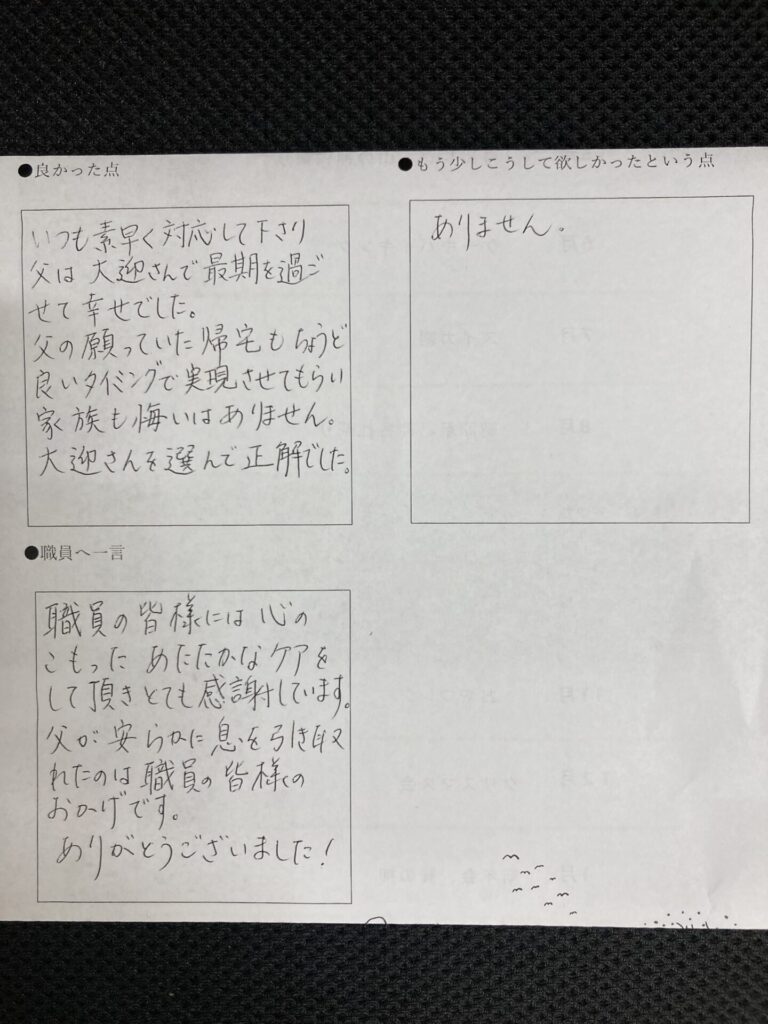 ●良かった点
いつも素早く対応して下さり
父は大迎さんで最期を過ご
せて幸せでした。
父の願っていた帰宅もちょうど
良いタイミングで実現させてもらい
家族も悔いはありません。
大迎さんを選んで正解でした。
●もう少しこうして欲しかったという点
ありません。
●職員へ一言
職員の皆様には心の
こもった あたたかなケアを
して頂きとても感謝しています。
父が安らかに息を引き取
れたのは職員の皆様の
おかげです。
ありがとうございました!